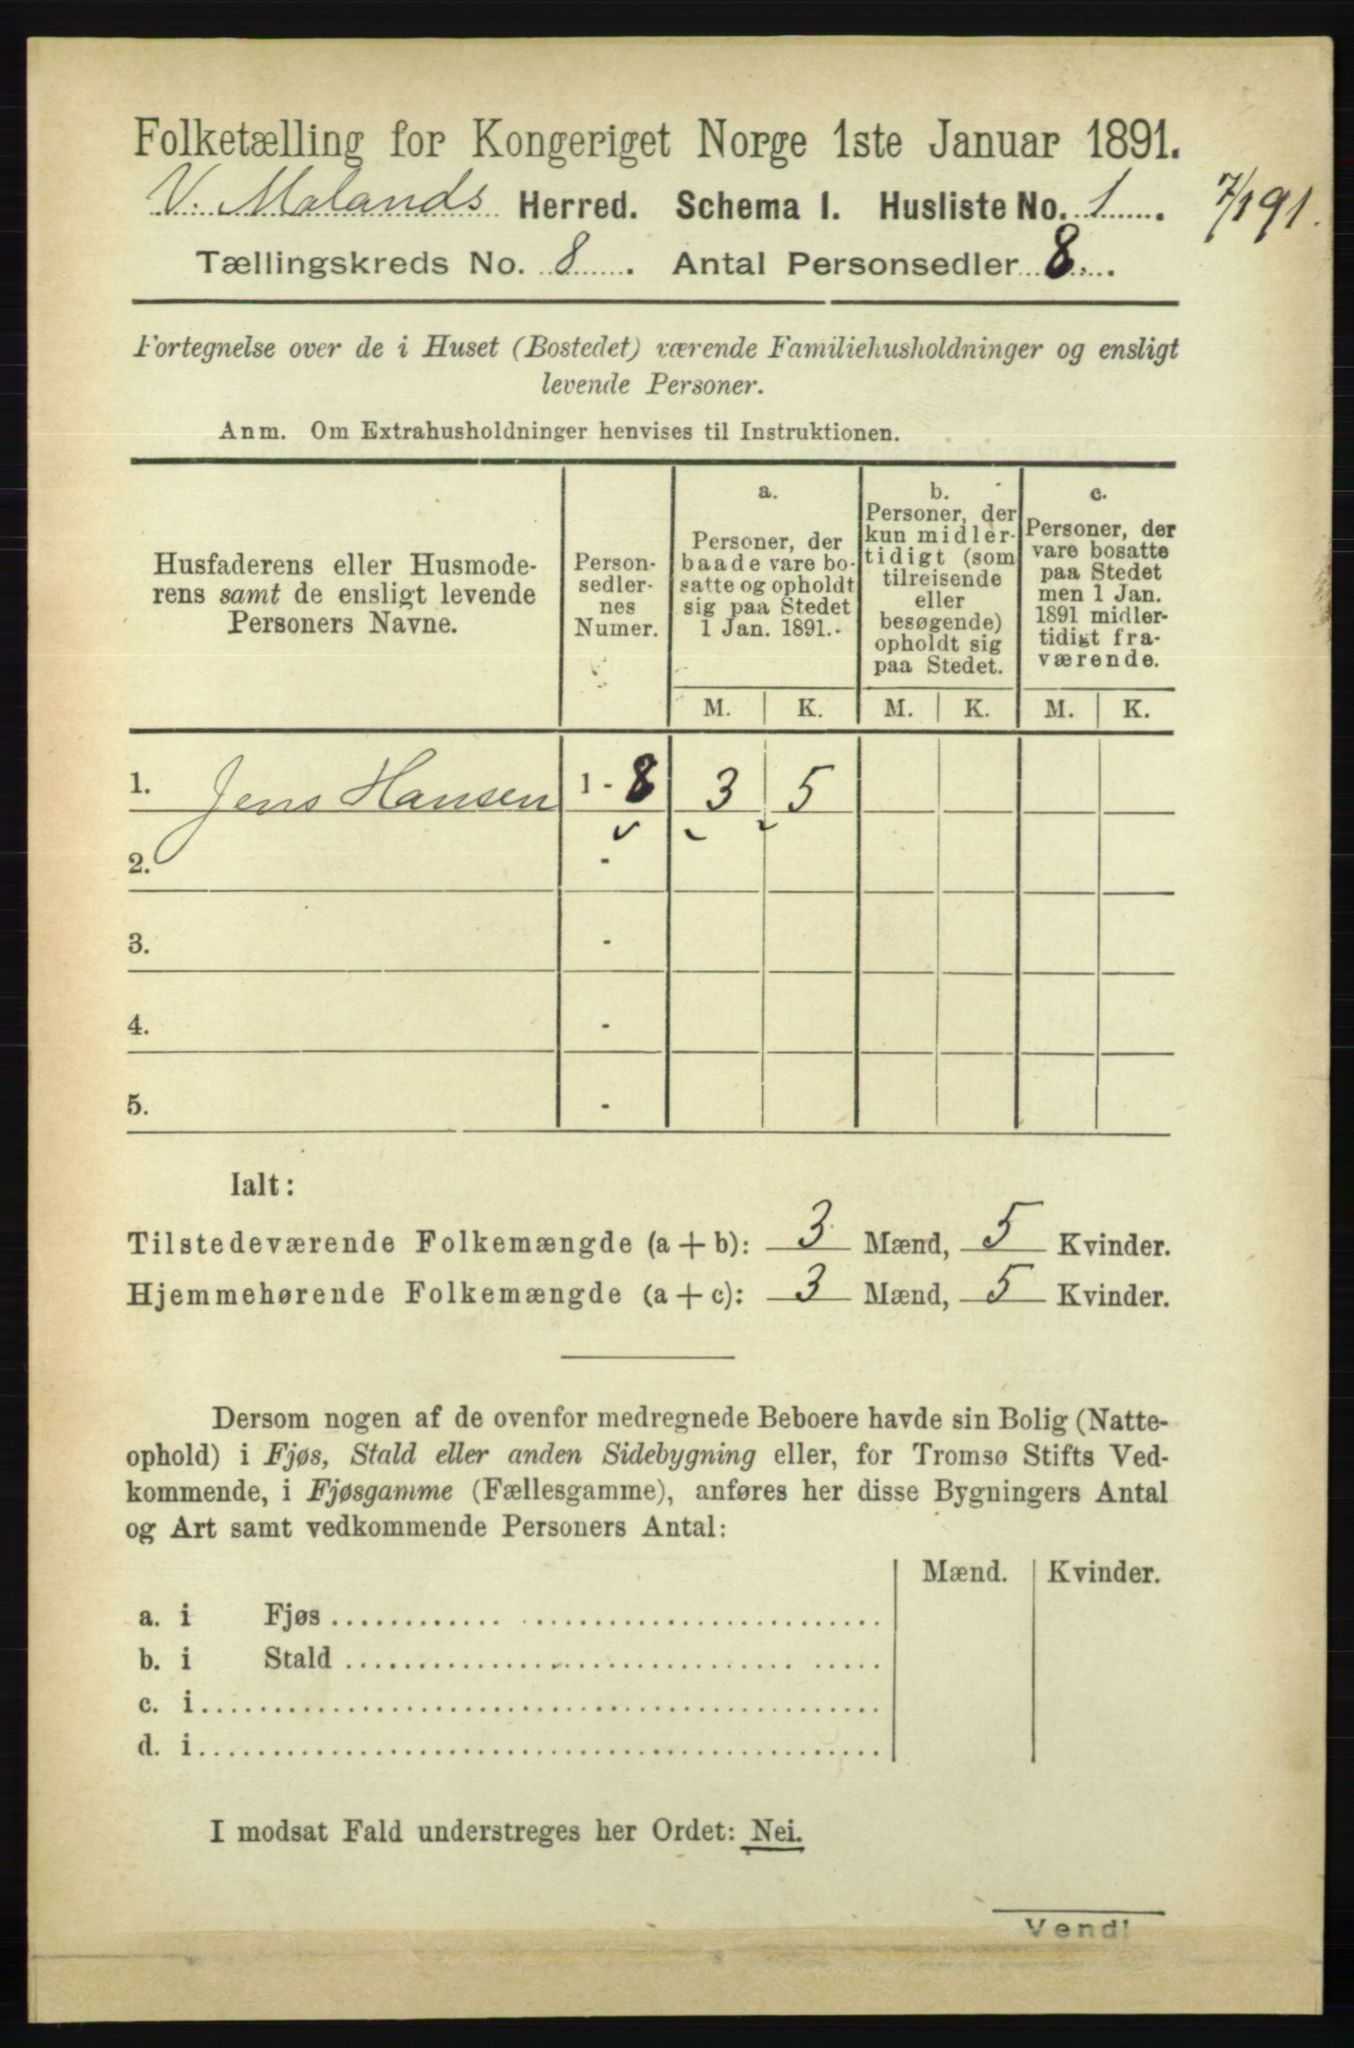 Folketælling for Kongeriget Norge 1ste Januar 1891.
V. Molands Herred. Schema I. Husliste No. 1
7/1 91.
Tællingskreds No. 8. Antal Personsedler 8.
Fortegnelse over de i Huset (Bostedet) værende Familiehusholdninger og ensligt
levende Personer.
Anm. Om Extrahusholdninger henvises til Instruktionen.
Husfaderens eller Husmode-
rens samt de ensligt levende
Personers Navne.
Person-
sedler-
nes
Numer.
a.
Personer, der
baade vare bo-
satte og opholdt
sig paa Stedet
1 Jan. 1891.
b.
Personer, der
kun midler-
tidigt (som
tilreisende
eller
besøgende)
opholdt sig
paa Stedet.
c.
Personer, der
vare bosatte
paa Stedet
men 1 Jan.
1891 midler-
tidigt fra-
værende.
M. K. M. K. M. K.
1. Jens Hansen 1 - 8 3 5
2. -
3. -
4. -
5. -
Ialt:
Tilstedeværende Folkemængde (a + b): 3 Mænd, 5 Kvinder.
Hjemmehørende Folkemængde (a + c): 3 Mænd, 5 Kvinder.
Dersom nogen af de ovenfor medregnede Beboere havde sin Bolig (Natte-
ophold) i Fjøs, Stald eller anden Sidebygning eller, for Tromsø Stifts Ved-
kommende, i Fjøsgamme (Fællesgamme), anføres her disse Bygningers Antal
og Art samt vedkommende Personers Antal:
Mænd. Kvinder.
a. i Fjøs
b. i Stald
c. i
d. i
I modsat Fald understreges her Ordet: Nei.
Vend!